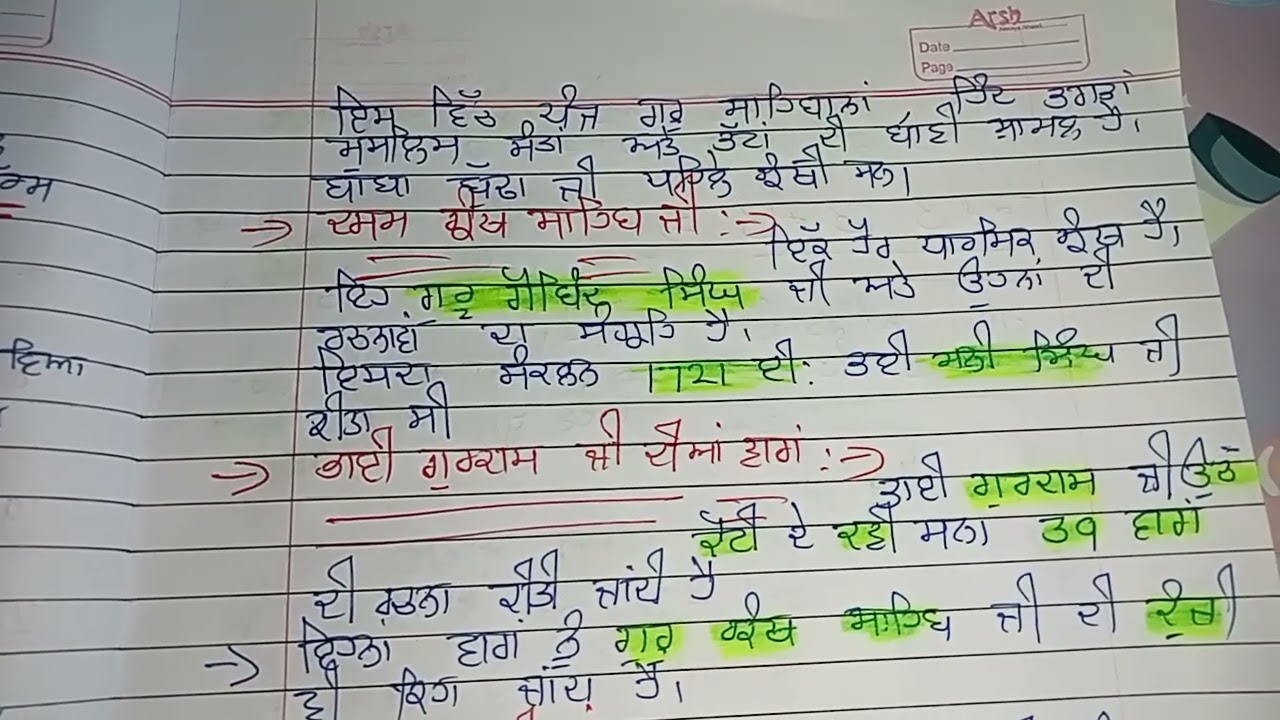 Arsh
Date
Page
ਇਸ ਵਿੱਚ ਪੰਜ ਗੁਰੂ ਸਾਹਿਬਾਨਾਂ ਹਿੰਦ ਭਗਤਾਂ
ਮੁਸਲਿਮ ਸੰਤਾ ਅਤੇ ਭੱਟਾਂ ਦੀ ਬਾਣੀ ਸਾਮਲ ਹੈ।
ਬਾਬਾ ਬੁੱਢਾ ਜੀ ਪਹਿਲੇ ਗ੍ਰੰਥੀ ਸਨ।
→ ਦਸਮ ਗ੍ਰੰਥ ਸਾਹਿਬ ਜੀ :→
ਇੱਕ ਹੋਰ ਧਾਰਮਿਕ ਗ੍ਰੰਥ ਹੈ।
ਇਹ ਗੁਰੂ ਗੋਬਿੰਦ ਸਿੰਘ ਜੀ ਅਤੇ ਉਹਨਾਂ ਦੀ
ਰਚਨਾਵਾਂ ਦਾ ਸੰਗ੍ਰਹਿ ਹੈ।
ਇਸਦਾ ਸੰਕਲਨ 1721 ਈ: ਭਾਈ ਮਨੀ ਸਿੰਘ ਜੀ
ਕੀਤਾ ਸੀ
→ ਭਾਈ ਗੁਰਦਾਸ ਜੀ ਦੀਆਂ ਵਾਰਾਂ :→
ਭਾਈ ਗੁਰਦਾਸ ਜੀ ਉੱਚ
ਕੋਟੀ ਦੇ ਕਵੀ ਸਨ। 39 ਵਾਰਾਂ
ਦੀ ਰਚਨਾ ਕੀਤੀ ਜਾਂਦੀ ਹੈ
→ ਇਹਨਾ ਵਾਰਾਂ ਨੂੰ ਗੁਰੂ ਗ੍ਰੰਥ ਸਾਹਿਬ ਜੀ ਦੀ ਕੁੰਜੀ
ਵੀ ਕਿਹਾ ਜਾਂਦਾ ਹੈ।